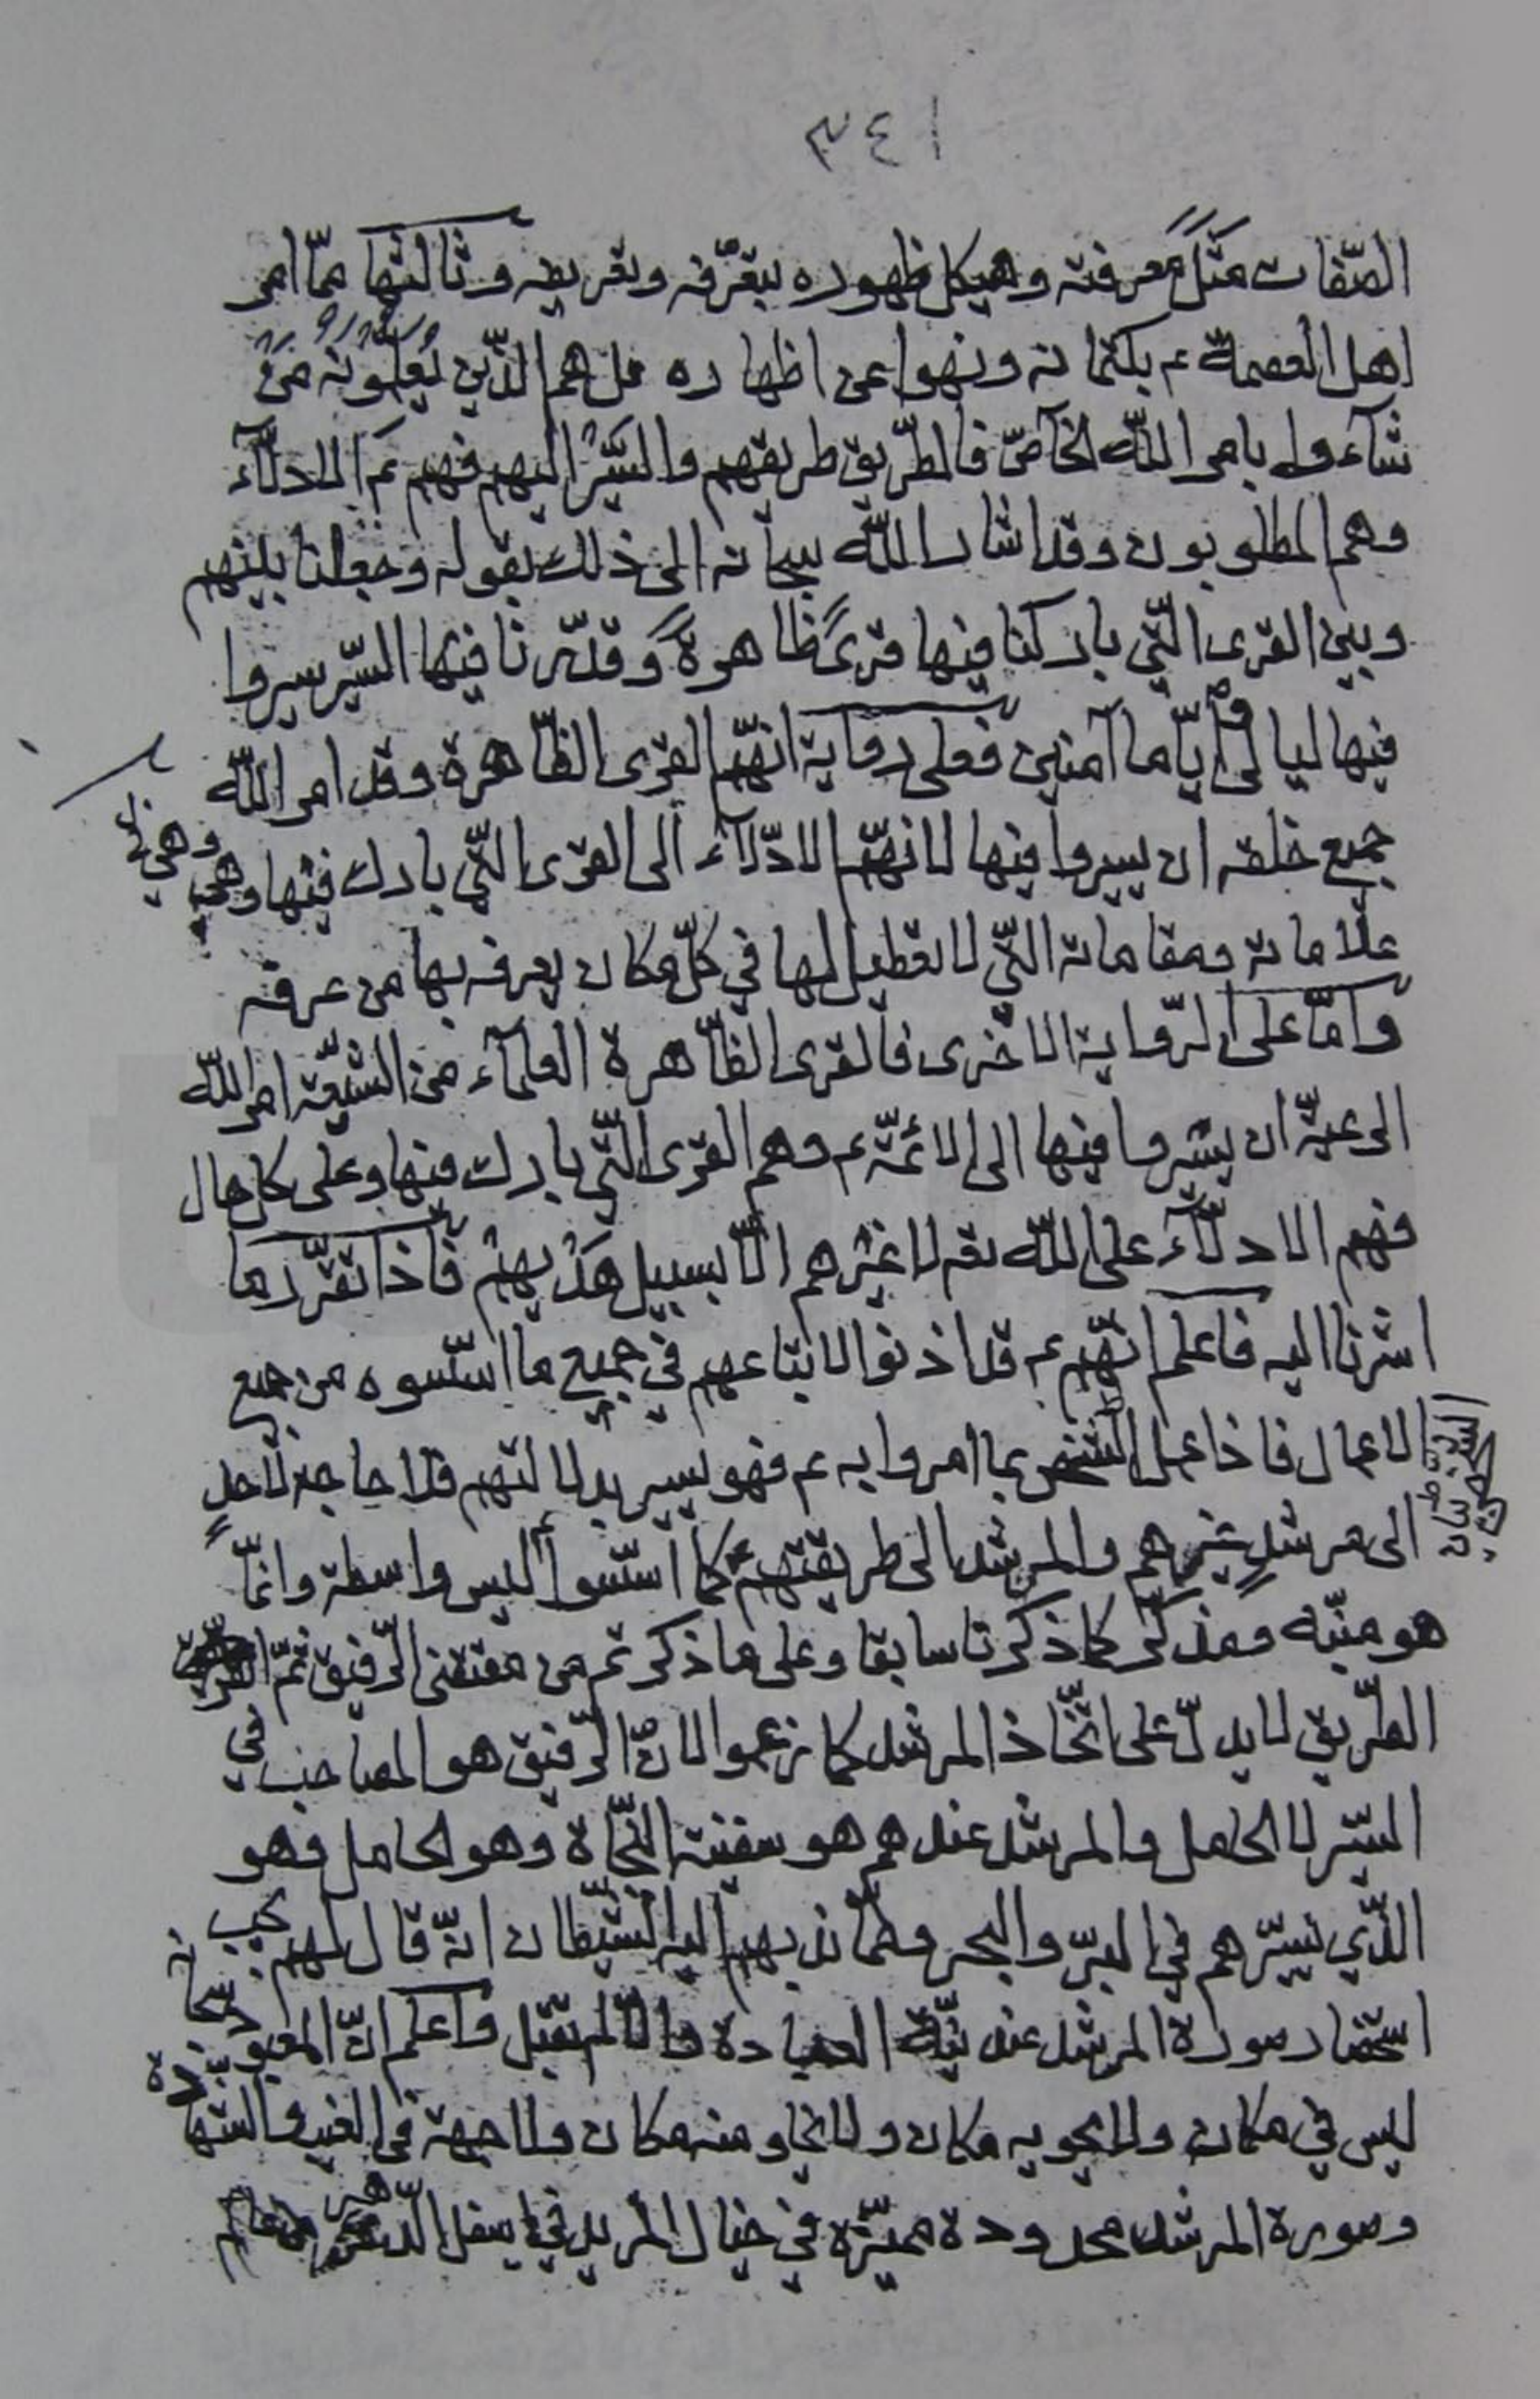 ٣٤١
الصّفات مثَلَ معرفته وهيكل ظهوره بتعرّفه وتعريفه وثالثها ممّا امر
اهل العصمة ع بكتمانه ونهوا عن اظهاره بل هم الّذين يُعلّمونَهُ مَنْ
شآءوا بامر اللّه الخاصّ فالطّريق طريقهم والسَّيْرُ اليهم فهم ع الادلّآء
وهم المطلوبون وقد اشار اللّه سبحانه الى ذلك بقوله وجعلنا بينهم
وبين القرى الّتي باركنا فيها قرىً ظاهرةً وقدّرنا فيها السّير سيروا
فيها ليالي وايّاما آمنين فعلى رواية انّهم القرى الظّاهرة وقد امر اللّه
جميع خلقه ان يسيروا فيها لانهّم الادّلآء الى القرى الّتي بارك فيها وهي
وهي
علاماته ومقاماته الّتي لا تعطيل لها في كلّ مكان يعرفه بها من عرفه
وامّا على الرّواية الاخرى فالقرى الظّاهرة العلمآء من الشّيعة امر اللّه
الرعيّة ان يسيروا فيها الى الائمّة ع وهم القرى الّتي بارك فيها وعلى كل حال
فهم الادلّآء على اللّه تع لا غيرهم الّا بسبيل هَدْيهِمْ فاذا تقرّر ما
اشرنا اليه فاعلم انّهم ع قد اذنوا لاتباعهم في جميع ما اسّسوه من جميع
الاعمال فاذا عمل الشخص بما امروا به ع فهو يسير بدلالتهم فلا حاجة لاحدٍ
الى مرشدٍ غيرهم والمرشد الى طريقتهم كما اسّسوا ليس واسطة وانّما
هو منبّه ومذكّر كما ذكرنا سابقا وعلى ما ذكرتم من مقتضى الرّفيق ثمّ
الطّريق لا يدلّ على اتّخاذ المرشد كما زعموا لانّ الرّفيق هو المصاحب في
السّير لا الحامل والمرشد عندهم هو سفينة النّجاة وهو الحامل وهو
الّذي يسيّرهم في البرّ والبحر وممّا ندبهم اليه الشّيطان انّه قال لهم يجب
استحضار صورة المرشد عند نيّة العبادة والّا لم تقبل واعلم انّ المعبود سبحانه
ليس في مكان ولا يحويه مكان ولا يخلو منه مكان ولا جهة في الغيب والشهادة
وصورة المرشد محدودة مميّزة في خيال المريد في اسفل الدّهر